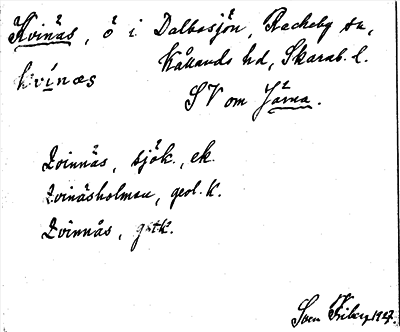 Kvinås, ö i Dalbosjön, Rackeby sn,
Kållands hd, Skarab. l.
kvínæs
SV om Järna.
Qvinnäs, sjök., ek.
Qvinäsholmen, geol. k.
Qvinnås, gstk.
Sven Friberg 1927.